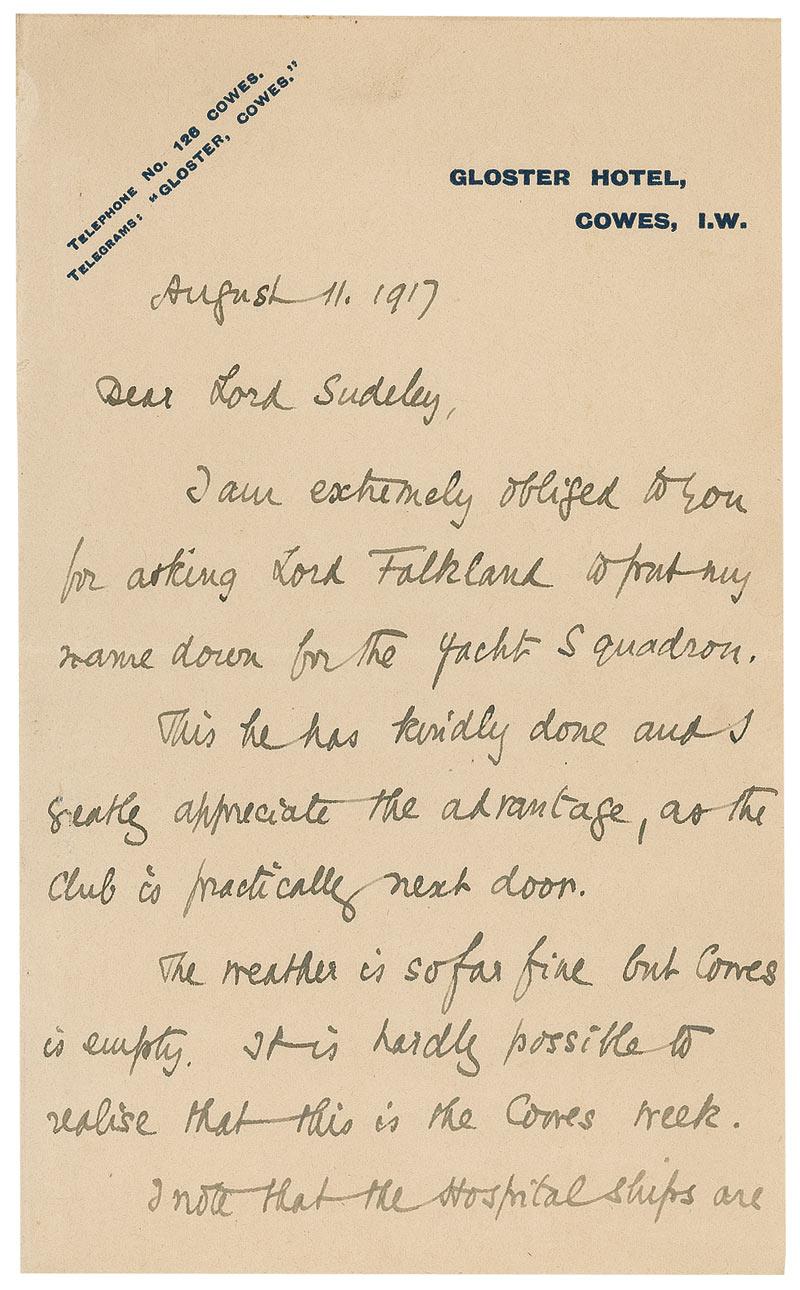 TELEPHONE No. 126 COWES.
TELEGRAMS: "GLOSTER, COWES."
GLOSTER HOTEL,
COWES, I.W.
August 11. 1917
Dear Lord Sudeley,
I am extremely obliged to you
for asking Lord Falkland to put my
name down for the Yacht Squadron.
This he has kindly done and I
greatly appreciate the advantage, as the
Club is practically next door.
The weather is so far fine but Cowes
is empty. It is hardly possible to
realise that this is the Cowes week.
I note that the Hospital ships are